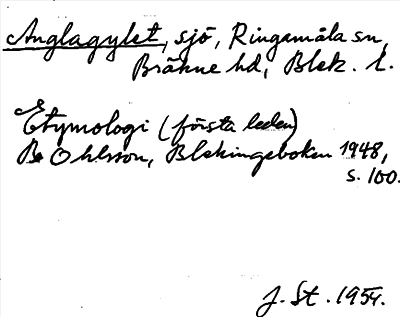 Anglagylet, sjö, Ringamåla sn,
Bräkne hd, Blek. l.
Etymologi (första leden)
B Ohlsson, Blekingeboken 1948,
s. 100.
J. St. 1954.